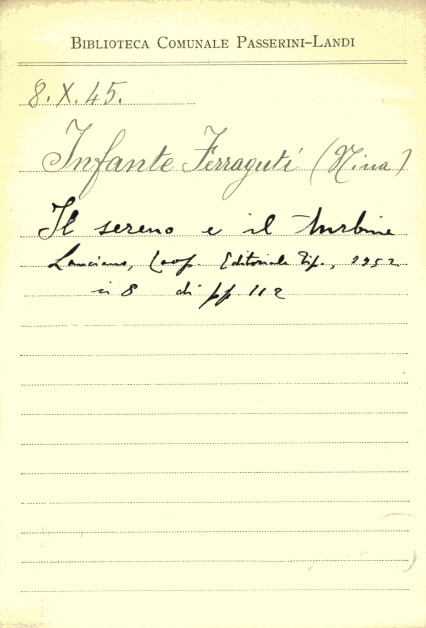 BIBLIOTECA COMUNALE PASSERINI-LANDI
8.X.45.
Infante Ferraguti (Nina)
Il sereno e il turbine
Lanciano, Coop. Editoriale Tip., 1952
in 8 di pp 112